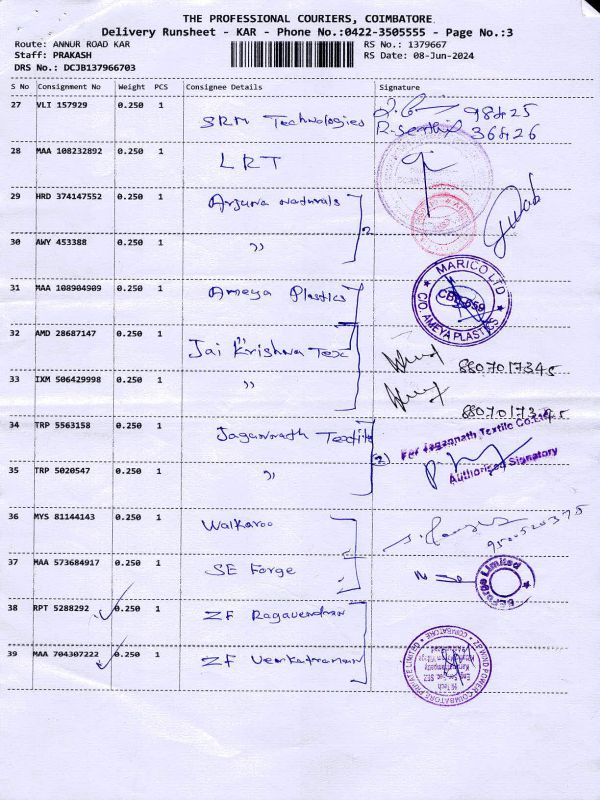 THE PROFESSIONAL COURIERS, COIMBATORE
Delivery Runsheet - KAR - Phone No.:0422-3505555 - Page No.:3
Route: ANNUR ROAD KAR
RS No.: 1379667
Staff: PRAKASH
RS Date: 08-Jun-2024
DRS No.: DCJB137966703
S No Consignment No Weight PCS Consignee Details Signature
27 VLI 157929 0.250 1 SRM Technologies 98425
R. Senthil 36426
28 MAA 108232892 0.250 1 LRT
29 HRD 374147552 0.250 1 Arjuna Naturals
30 AWY 453388 0.250 1 "
31 MAA 108904909 0.250 1 Ameya Plastics
MARICO LTD
C/O. AMEYA PLASTICS
32 AMD 28687147 0.250 1 Jai Krishna Tex
8807017345
33 IXM 506429998 0.250 1 "
34 TRP 5563158 0.250 1 Jagannath Textile
(2)
For Jagannath Textile Co.Ltd
Authorised Signatory
35 TRP 5020547 0.250 1 "
36 MYS 81144143 0.250 1 Walkaroo
9500520375
37 MAA 573684917 0.250 1 SE Forge
SE Forge Limited
38 RPT 5288292 0.250 1 ZF Ragavendran
39 MAA 704307222 0.250 1 ZF Venkatraman
ZF WIND POWER COIMBATORE PRIVATE LIMITED
COIMBATORE